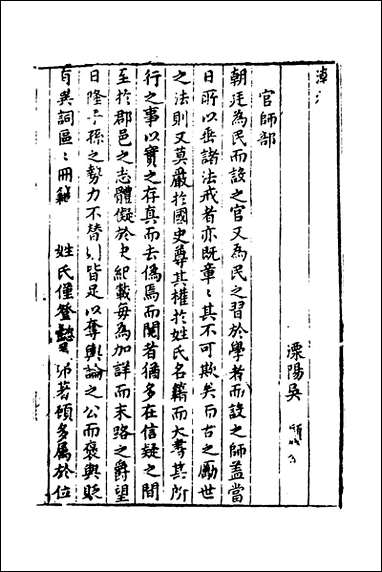 官師部
溧陽吳
朝廷為民而設之官又為民之習於學者而設之師蓋當
日所以垂諸法戒者亦既章〻其不可欺矣而古之勵世
之法則又莫嚴於國史尊其權於姓氏名籍而大書其所
行之事以實之存真而去偽焉而閱者猶多在信疑之間
至於郡邑之志體儗於史紀載毋為加詳而末路之爵望
日隆子孫之勢力不替則皆足以奪輿論之公而褒與貶
有異詞區〻冊籍 姓氏僅登 著頓多属於位